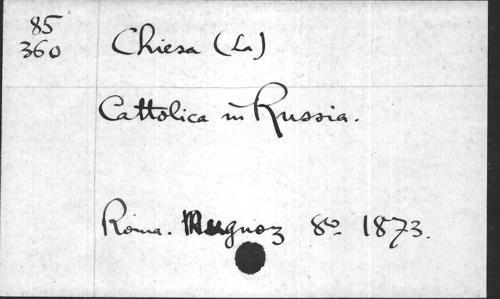 85
360
Chiesa (La)
Cattolica in Russia.
Roma. Mugnoz 8º 1873.